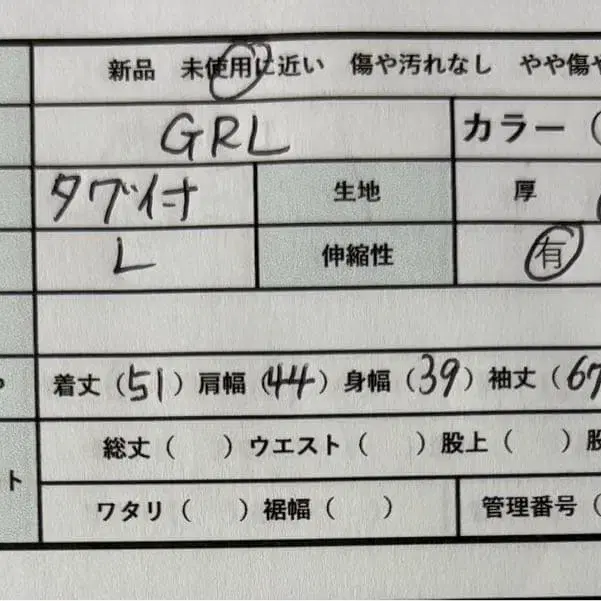 新品 未使用に近い 傷や汚れなし やや傷や
GRL カラー（
タグ付 生地 厚
L 伸縮性 有
着丈（51）肩幅（44）身幅（39）袖丈（67
総丈（ ）ウエスト（ ）股上（ ）股
ト
ワタリ（ ）裾幅（ ） 管理番号（